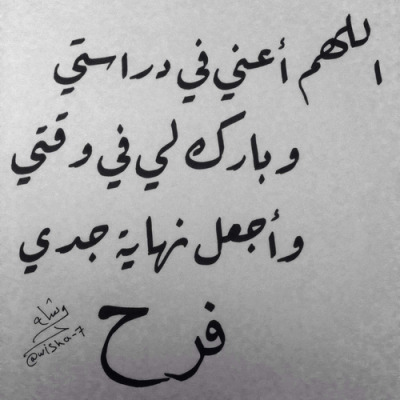 اللهم أعني في دراستي
وبارك لي في وقتي
وأجعل نهاية جدي
فرح
وشاه
@wisha-7